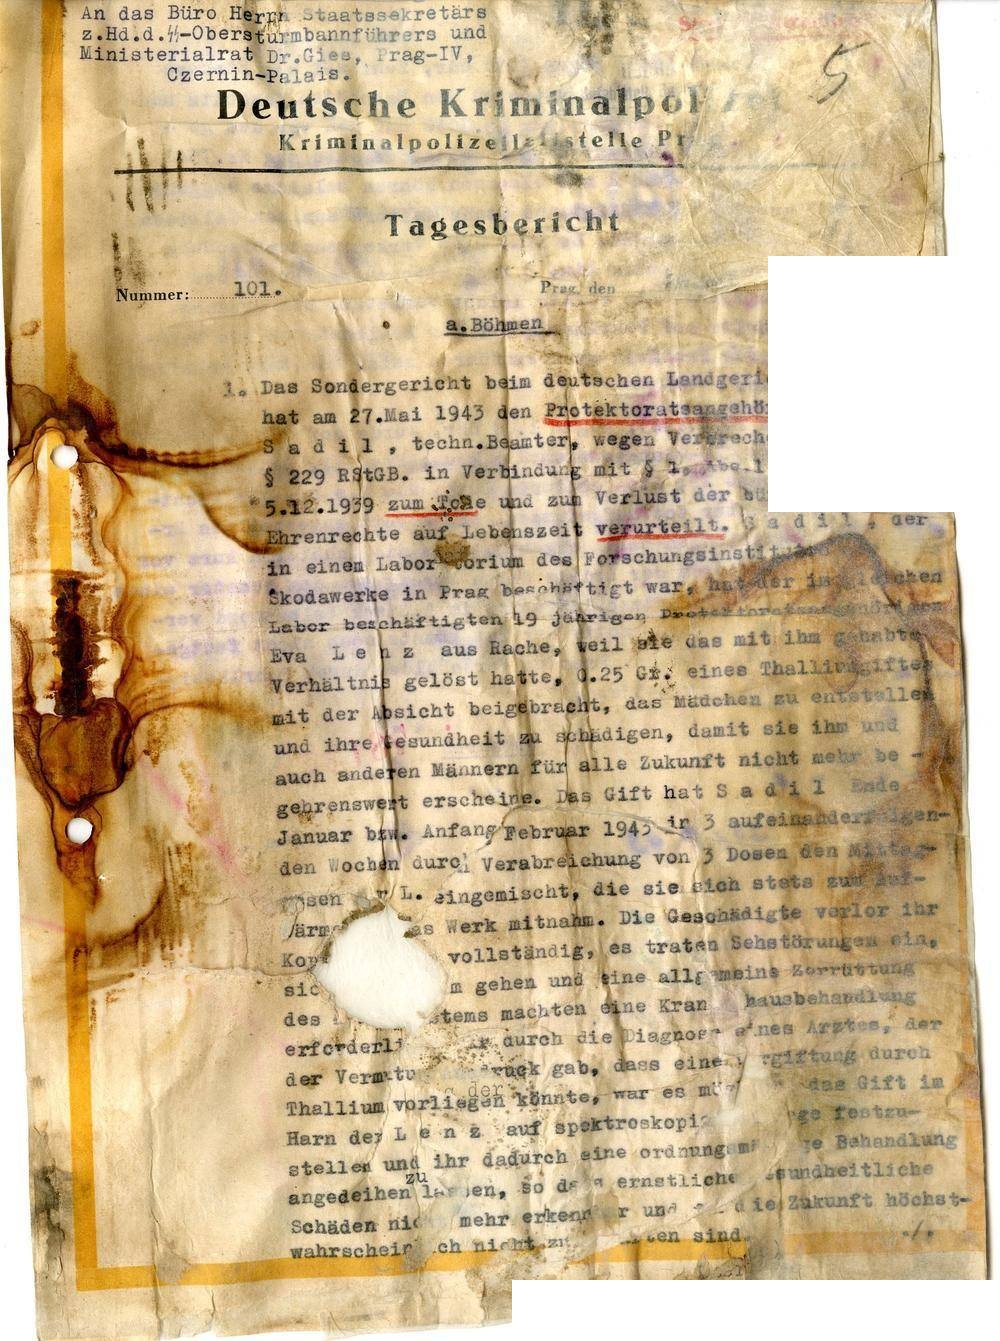 An das Büro Herrn Staatssekretärs
z.Hd.d.SS-Obersturmbannführers und
Ministerialrat Dr.Gies, Prag-IV,
Czernin-Palais.
5
Deutsche Kriminalpol
Kriminalpolizeileitstelle Pr
Tagesbericht
Nummer: 101. Prag, den
a.Böhmen
1. Das Sondergericht beim deutschen Landgeri
hat am 27.Mai 1943 den Protektoratsangehö
S a d i l , techn.Beamter, wegen Verbreche
§ 229 RStGB. in Verbindung mit § 1,
5.12.1939 zum Tode und zum Verlust der bü
Ehrenrechte auf Lebenszeit verurteilt. S a d i l , der
in einem Laboratorium des Forschungsinstit
Skodawerke in Prag beschäftigt war, hat der im gleichen
Labor beschäftigten 19 jährigen Protektoratsangehörigen
Eva L e n z aus Rache, weil sie das mit ihm gehabte
Verhältnis gelöst hatte, 0.25 Gr. eines Thalliumgiftes
mit der Absicht beigebracht, das Mädchen zu entstellen
und ihre Gesundheit zu schädigen, damit sie ihm und
auch anderen Männern für alle Zukunft nicht mehr be -
gehrenswert erscheine. Das Gift hat S a d i l Ende
Januar bzw. Anfang Februar 1943 in 3 aufeinanderfolgen-
den Wochen durch Verabreichung von 3 Dosen den Mittag-
essen der L. eingemischt, die sie sich stets zum Auf-
wärme as Werk mitnahm. Die Geschädigte verlor ihr
Kop vollständig, es traten Sehstörungen ein,
sic m gehen und eine allgemeine Zerrüttung
des stems machten eine Krankenhausbehandlung
erforderli durch die Diagnose eines Arztes, der
der Vermutung Ausdruck gab, dass eine Vergiftung durch
der
Thallium vorliegen könnte, war es mög das Gift im
Harn der L e n z auf spektroskopi ge festzu-
stellen und ihr dadurch eine ordnungsmäßige Behandlung
zu
angedeihen lassen, so dass ernstliche gesundheitliche
Schäden nicht mehr erkennbar und für die Zukunft höchst-
wahrscheinlich nicht zu ten sind.
./.